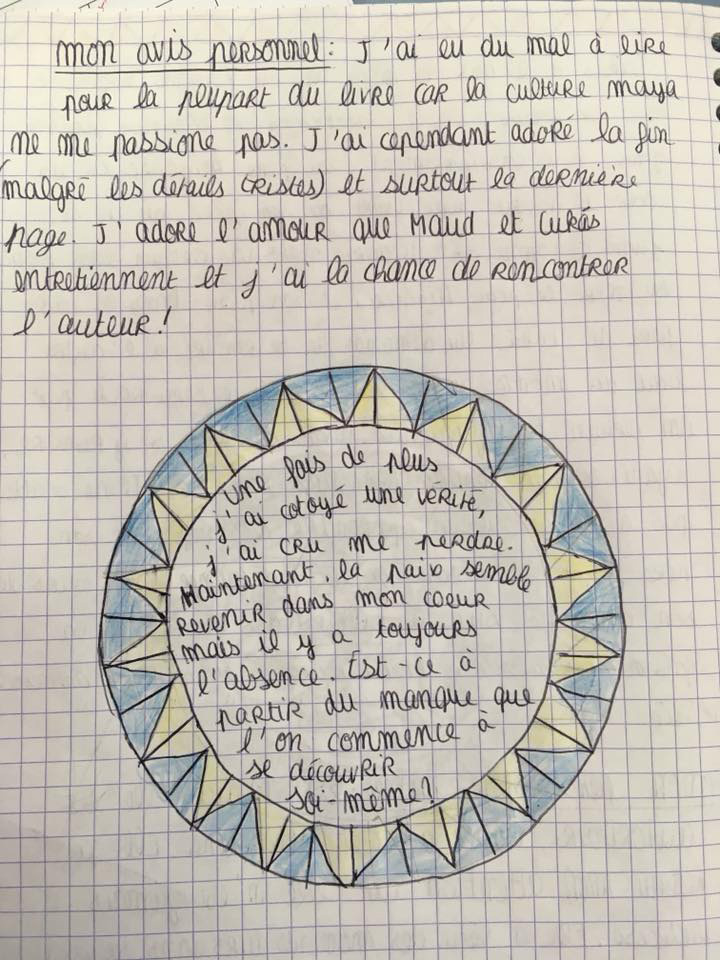 mon avis personnel : J'ai eu du mal à lire
pour la plupart du livre car la culture maya
me me passione pas. J'ai cependant adoré la fin
malgré les détails (tristes) et surtout la dernière
page. J'adore l'amour que Maud et Lukás
entretiennent et j'ai la chance de rencontrer
l'auteur !
Une fois de plus
j'ai cotoyé une vérité,
j'ai cru me perdre.
Maintenant, la paix semble
revenir dans mon coeur
mais il y a toujours
l'absence. Est-ce à
partir du manque que
l'on commence à
se découvrir
soi-même ?